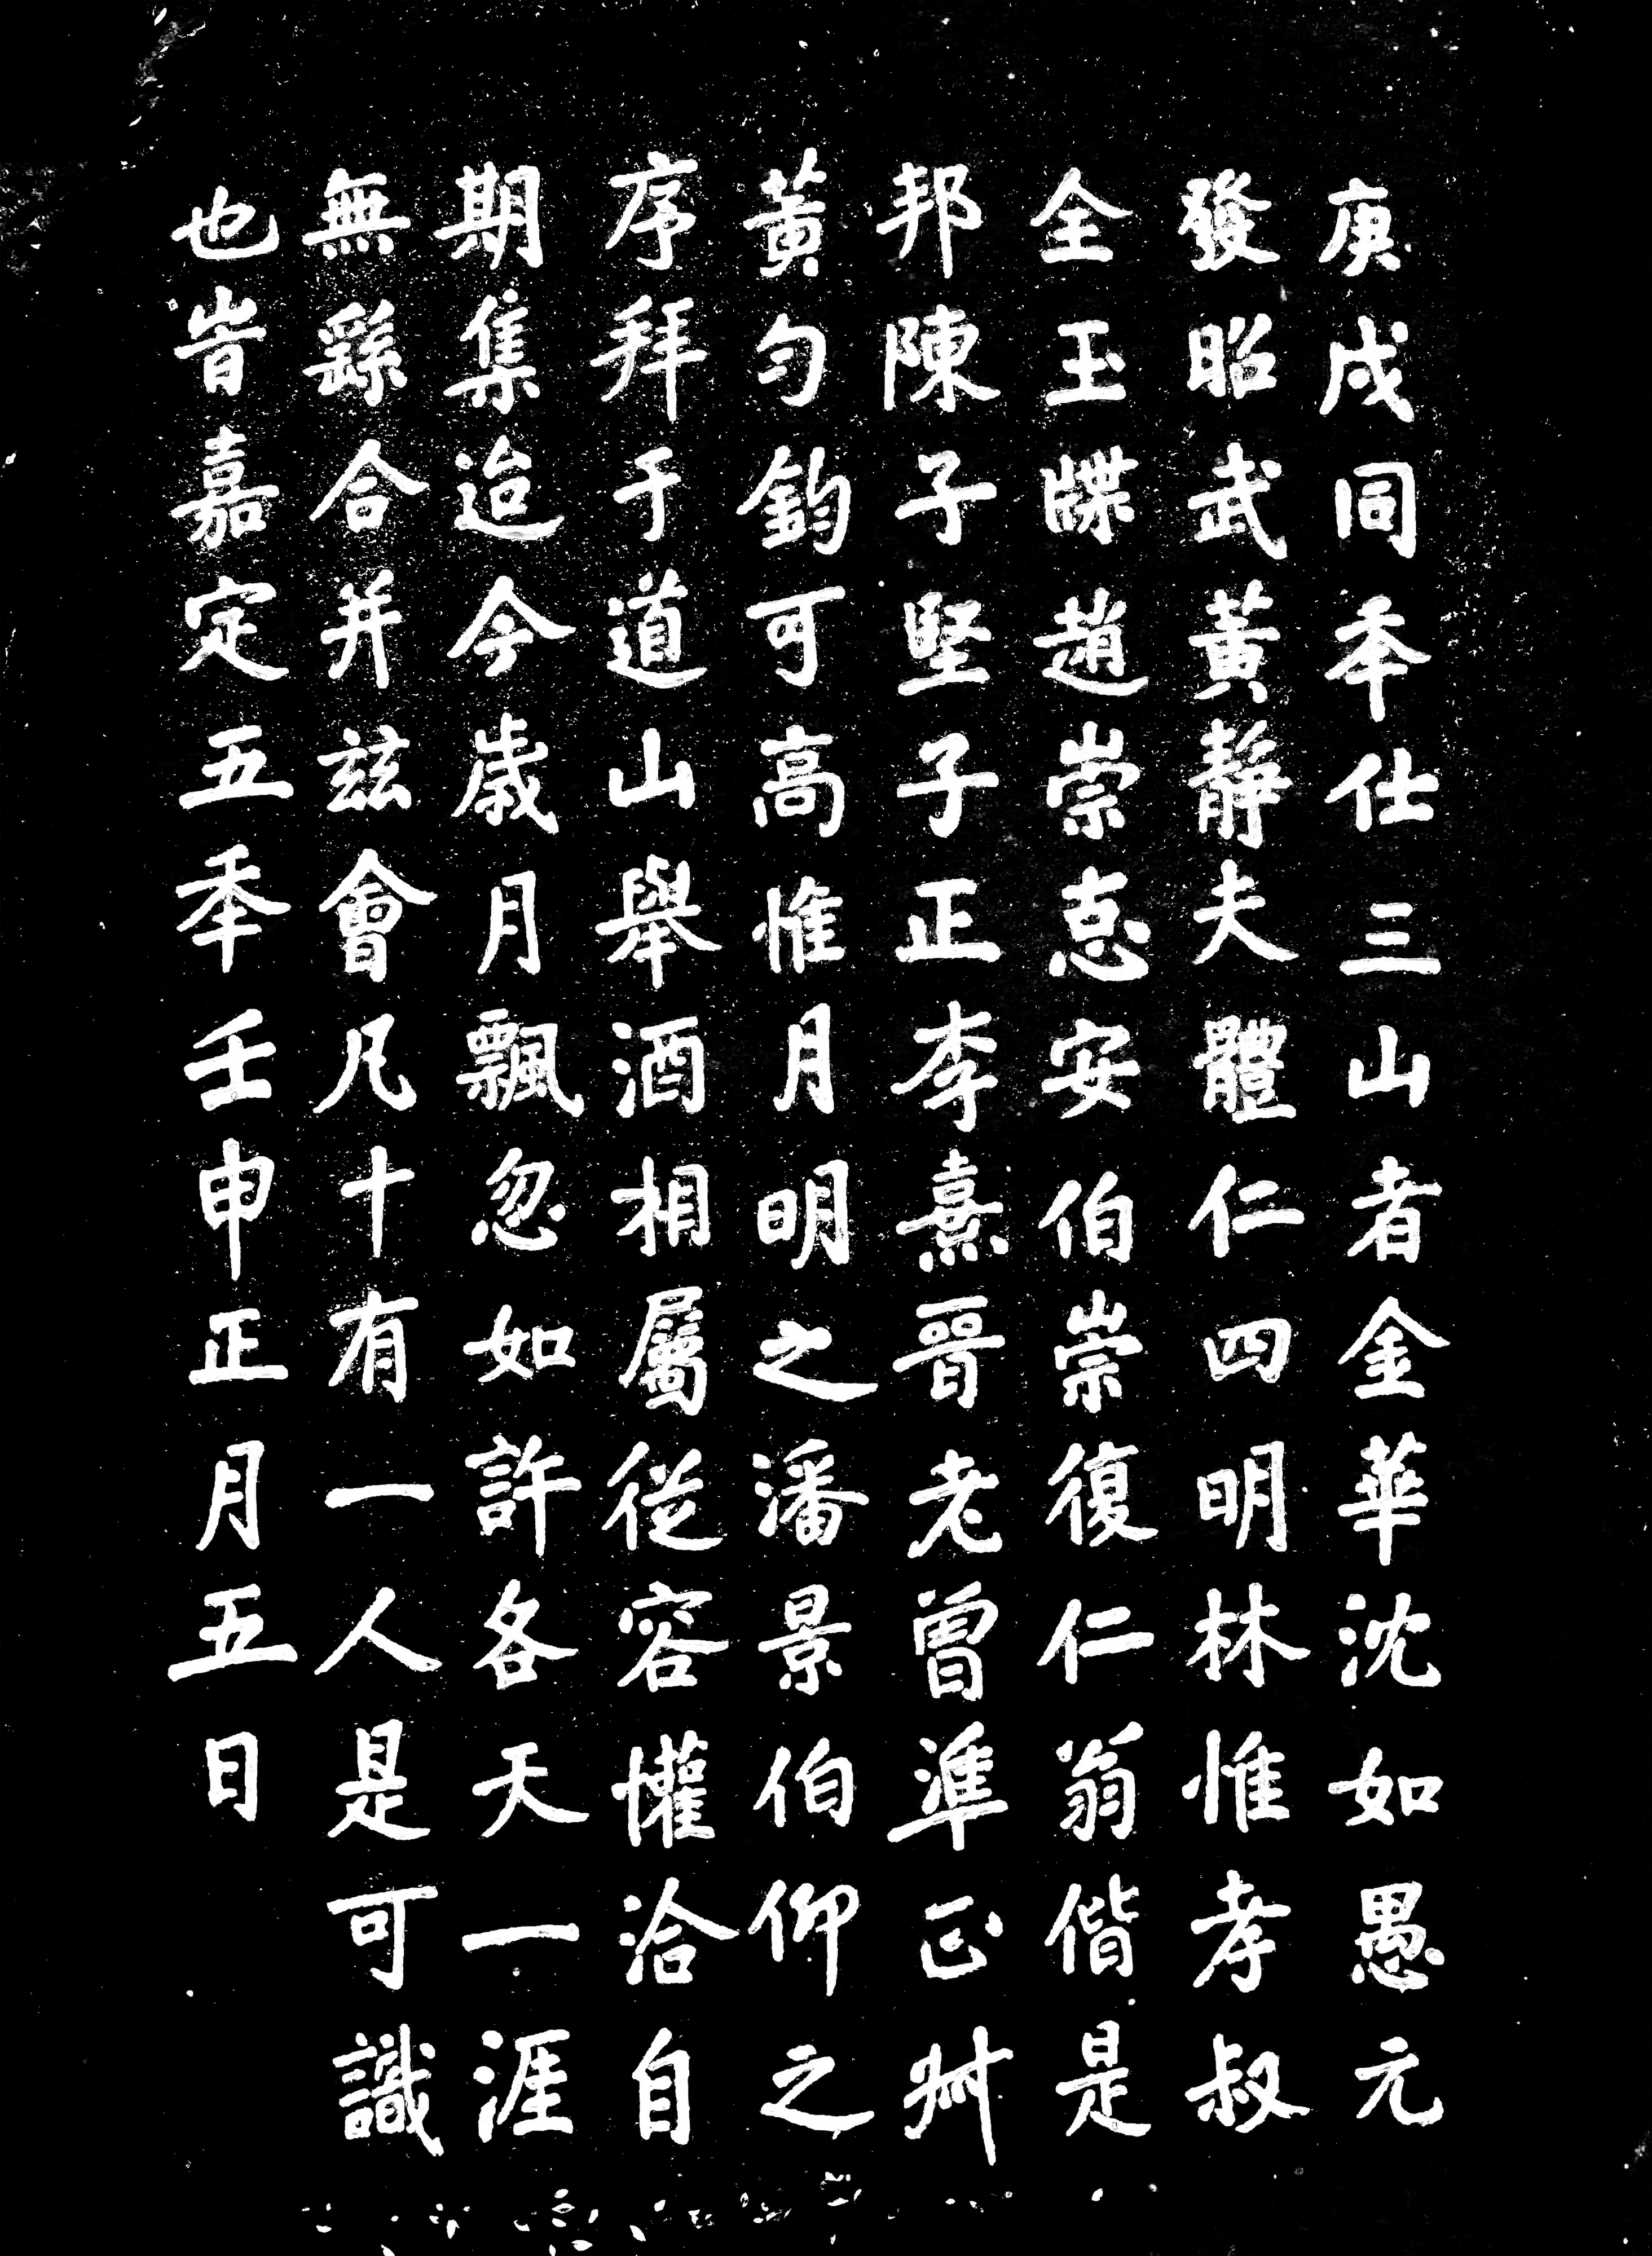 庚戌同年仕三山者金華沈如愚元
發昭武黃靜夫體仁四明林惟孝叔
全玉牒趙崇悳安伯崇復仁翁偕是
邦陳子堅子正李熹晉老曾準正叔
黃勻鈞可高惟月明之潘景伯仰之
序拜于道山舉酒相屬從容懽洽自
期集迨今歲月飄忽如許各天一涯
無繇合并茲會凡十有一人是可識
也旹嘉定五年壬申正月五日